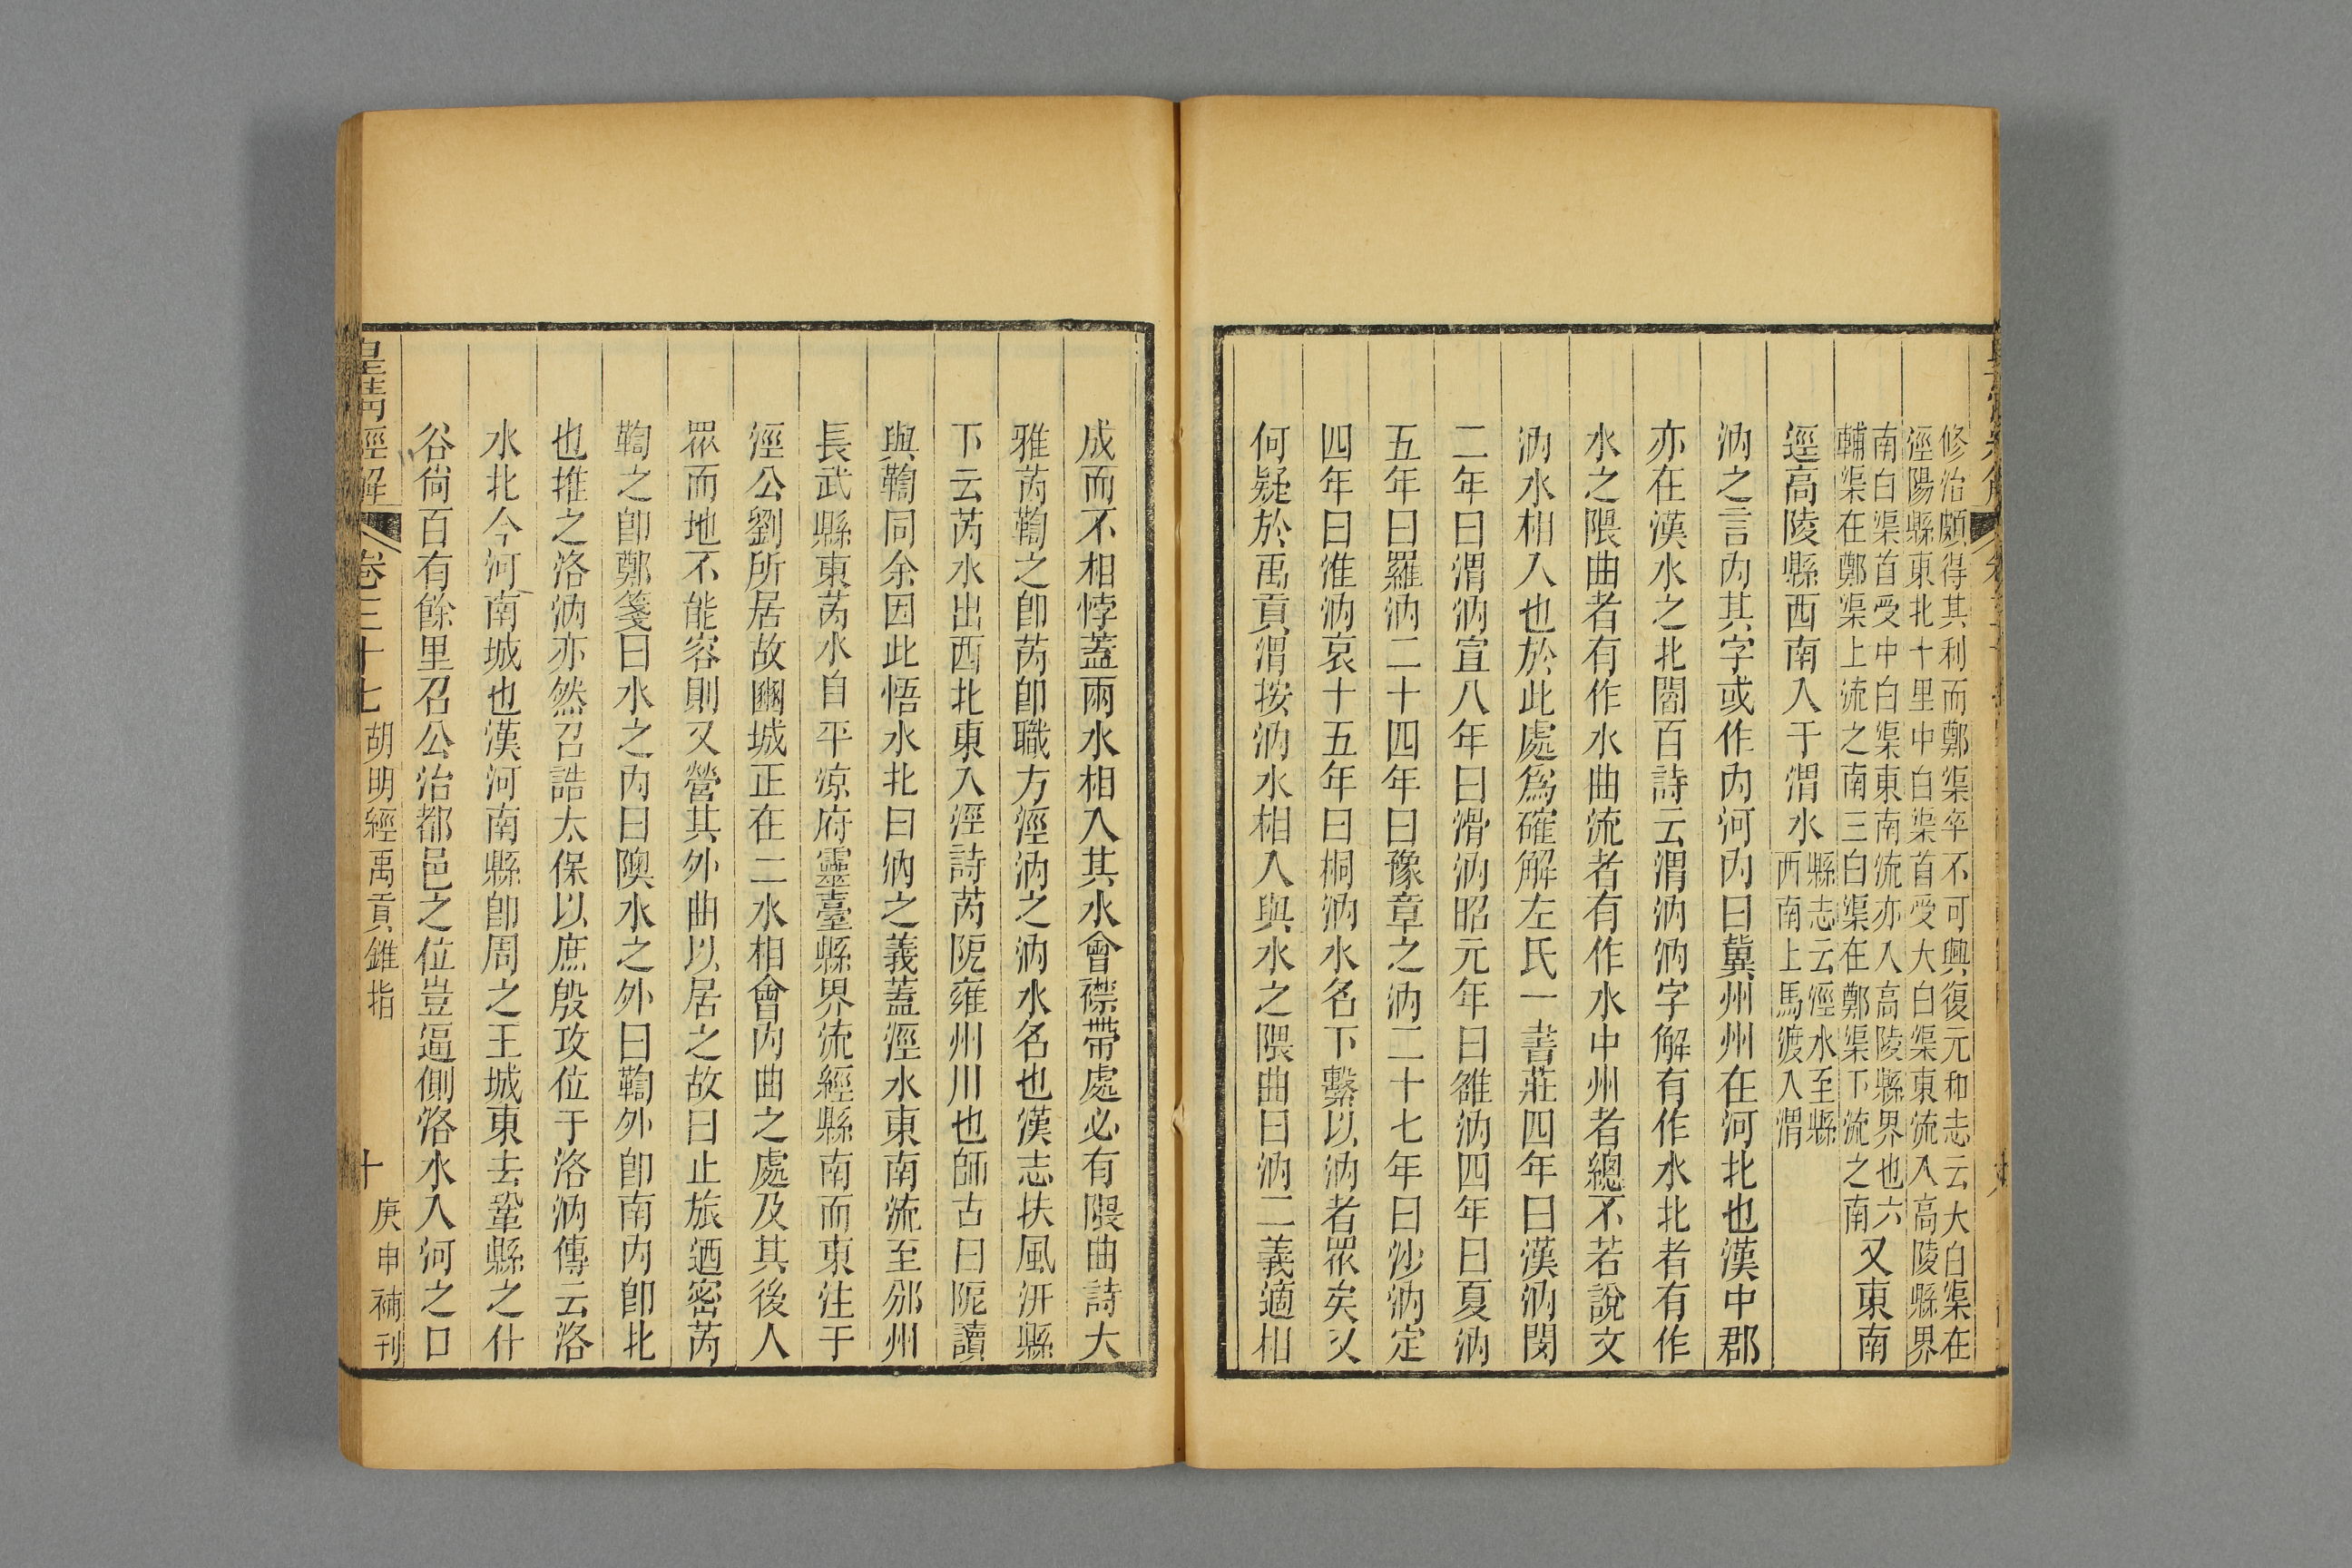 修治頗得其利而鄭渠卒不可興復元和志云大白渠在
涇陽縣東北十里中白渠首受大白渠東流入高陵縣界
南白渠首受中白渠東南流亦入高陵縣界也六
輔渠在鄭渠上流之南三白渠在鄭渠下流之南
又東南
逕高陵縣西南入于渭水
縣志云涇水至縣
西南上馬渡入渭
汭之言內其字或作內河內曰冀州州在河北也漢中郡
亦在漢水之北閻百詩云渭汭汭字解有作水北者有作
水之隈曲者有作水曲流者有作水中州者總不若說文
汭水相入也於此處爲確解左氏一書莊四年曰漢汭閔
二年曰渭汭宣八年曰滑汭昭元年曰雒汭四年曰夏汭
五年曰羅汭二十四年曰豫章之汭二十七年曰沙汭定
四年曰淮汭哀十五年曰桐汭水名下繫以汭者眾矣又
何疑於禹貢渭按汭水相入與水之隈曲曰汭二義適相
成而不相悖蓋兩水相入其水會襟帶處必有隈曲詩大
雅芮鞫之卽芮卽職方涇汭之汭水名也漢志扶風汧縣
下云芮水出西北東入涇詩芮阸雍州川也師古曰阸讀
與鞫同余因此悟水北曰汭之義蓋涇水東南流至邠州
長武縣東芮水自平涼府靈臺縣界流經縣南而東注于
涇公劉所居故豳城正在二水相會內曲之處及其後人
眾而地不能容則又營其外曲以居之故曰止旅迺密芮
鞫之卽鄭箋曰水之內曰隩水之外曰鞫外卽南內卽北
也推之洛汭亦然召誥太保以庶殷攻位于洛汭傳云洛
水北今河南城也漢河南縣卽周之王城東去鞏縣之什
谷尚百有餘里召公治都邑之位豈逼側洛水入河之口
皇清經解
卷三十七
胡明經禹貢錐指
十
庚申補刊